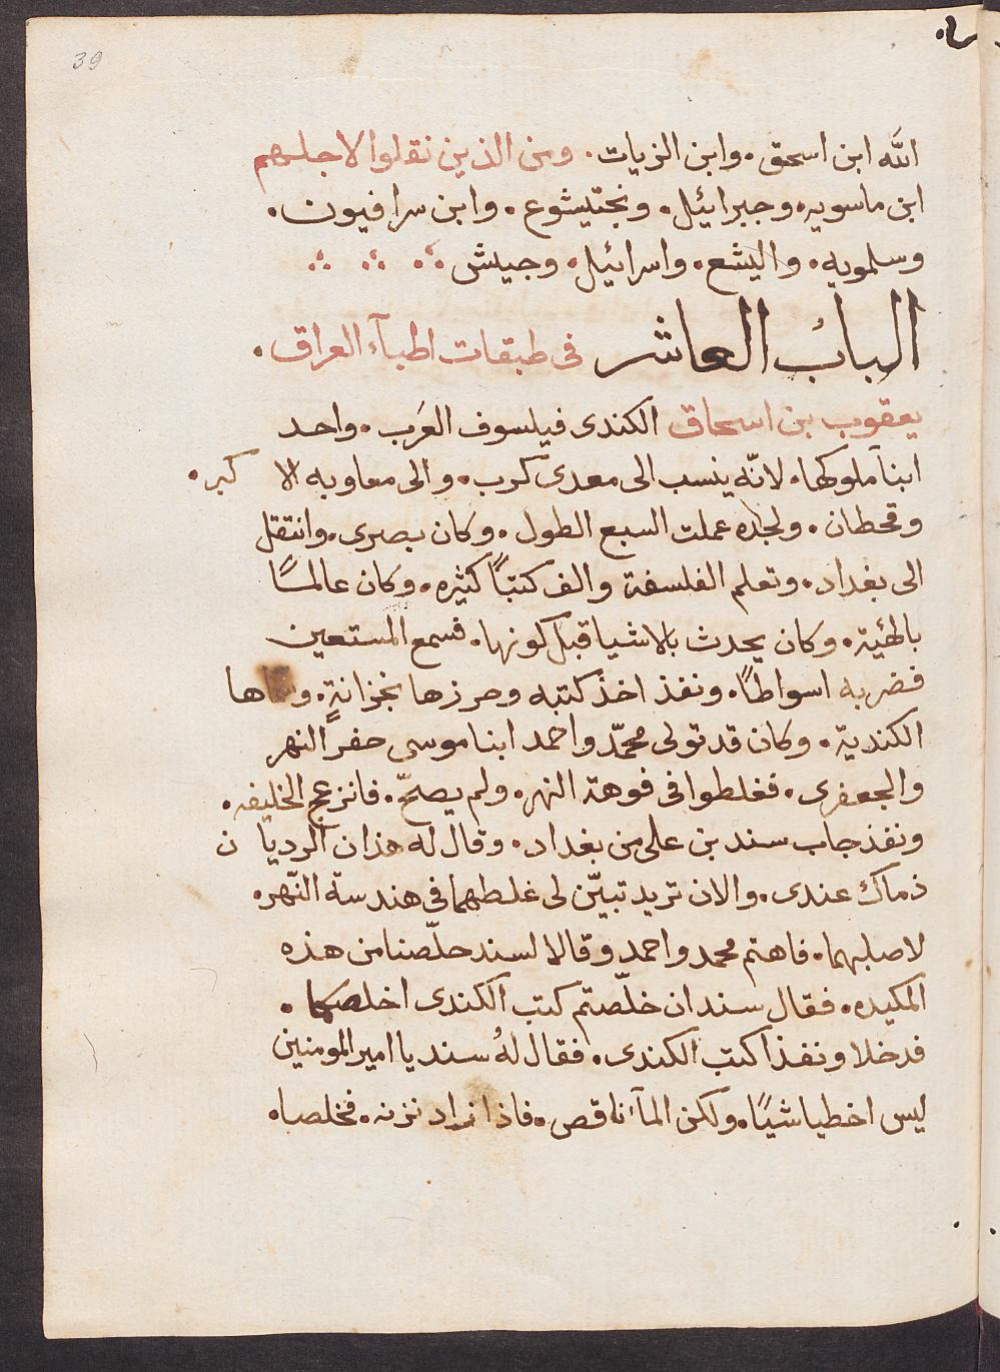 39
الله ابن اسحق. وابن الزيات. ومن الذين نقلوا لاجلهم
ابن ماسويه. وجبرائيل. وبختيشوع. وابن سرافيون.
وسلمويه. واليشع. واسرائيل. وحبيش
البابُ العاشر فى طبقات اطبآء العراق.
يعقوب بن اسحاق الكندى فيلسوف العَرب. واحد
ابنآ ملوكها. لانّه ينسب الى معدى كرب. والى معاويه الا كبر.
وقحطان. ولجده عملت السبع الطول. وكان بصرى. وانتقل
الى بغداد. وتعلم الفلسفة والف كتبًا كثيره. وكان عالمًا
بالهئية. وكان يحدث بالاشيا قبل كونها. فسمع المستعين
فضربه اسواطًا. ونفذ اخذ كتبه وحرزها بخزانةٍ. وسماها
الكندية. وكان قد تولى محمّد واحمد ابنا موسى حفر النهر
والجعفرى. فغلطوا فى فوهة النهر. ولم يصحّ. فانزعج الخليفه.
ونفذ جاب سند بن على من بغداد. وقال له هذان الرديا ن
ذماك عندى. والان تريد تبيّن لى غلطهما فى هندسة النّهر.
لاصلبهما. فاهتم محمد واحمد وقالا لسند خلّصنا من هذه
المكيده. فقال سند ان خلّصتم كتب الكندى اخلصكما.
فدخلا ونفذا كتب الكندى. فقال لهُ سند يا امير المومنين
ليس اخطيا شيًا. ولكن المآ ناقص. فاذا زاد نزنه. فخلصا.